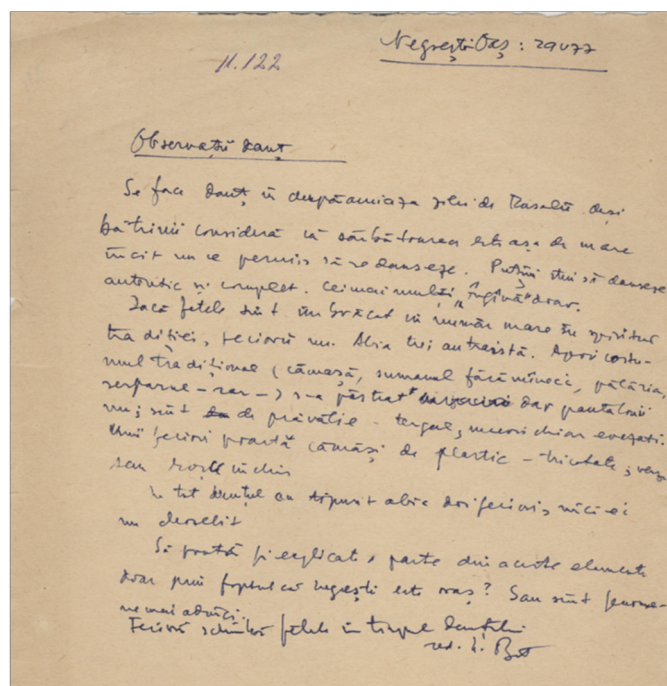 Negrești Oaș: 29 V 77
11.122
Observații danț
Se face danț în după amiaza zilei de Rusalii deși
bătrînii consideră că sărbătoarea este așa de mare
încît nu se permis să se danseze. Puțini știu să danseze
autentic și complet. Cei mai mulți „îngînă” doar.
Dacă fetele sînt îmbrăcat în număr mare în spiritul
tradiției, feciorii nu. Abia trei au traistă. Apoi costu-
mul tradițional (cămașă, sumanul fără mîneci, pălăria,
- rar -) s-a păstrat dar pantalonii
nu; sînt de prăvălie - tergal, uneori chiar evazați.
Unii feciori poartă cămăși de plastic - tricotate,
sau roșu închis
În tot danțul au țipurit abia doi feciori, nici ei
nu deosebit
Să poată fi explicate, parte din aceste elemente
doar prin faptul că Negrești este oraș? Sau sînt fenome-
ne mai adînci.
Feciorii schimbă fetele în timpul danțului